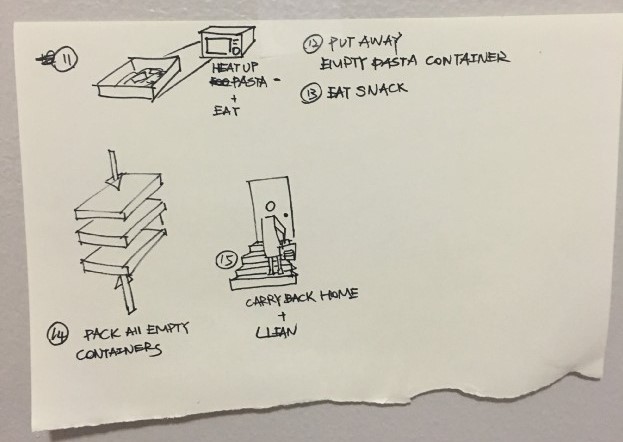 11
HEAT UP
PASTA -
+
EAT
12 PUT AWAY
EMPTY PASTA CONTAINER
13 EAT SNACK
14 PACK All EMPTY
CONTAINERS
15
CARRY BACK HOME
+
CLEAN